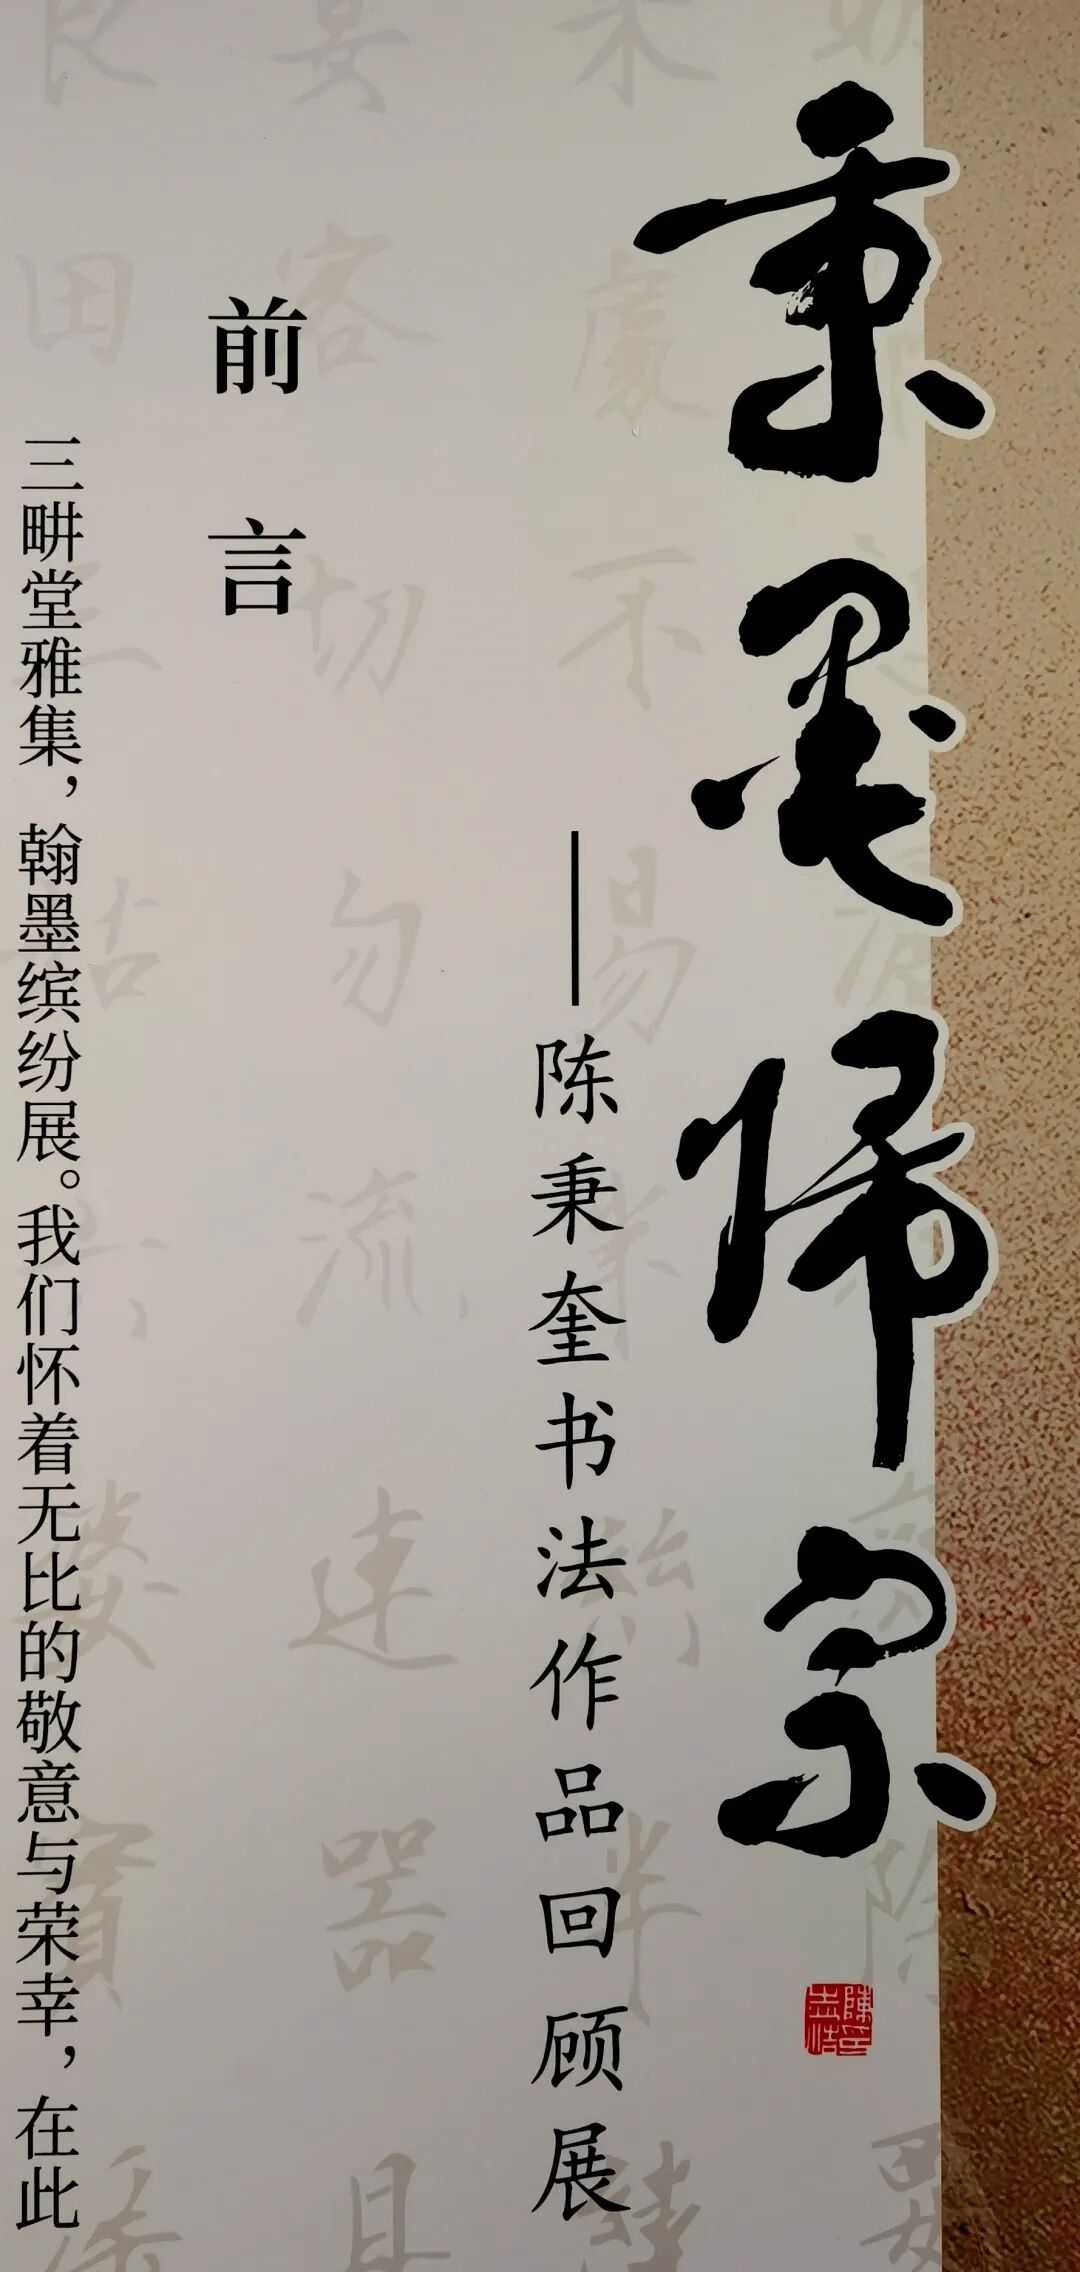 秉墨归宗
——陈秉奎书法作品回顾展
前言
三畊堂雅集，翰墨缤纷展。我们怀着无比的敬意与荣幸，在此